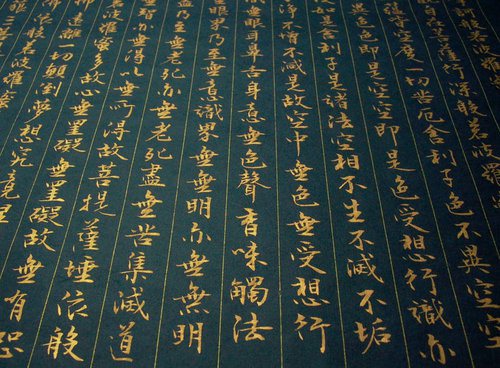 薩行深般若波羅蜜
空度一切苦厄舍利子色不異空空
異色色即是空空即是色受想行識亦
是舍利子是諸法空相不生不滅不垢
淨不增不減是故空中無色無受想行
眼耳鼻舌身意無色聲香味觸法
眼界乃至無意識界無無明亦無無明
乃至無老死亦無老死盡無苦集滅道
智亦無得以無所得故菩提薩埵依般
波羅蜜多故心無罣礙無罣礙故無有恐
遠離一切顛倒夢想究竟涅
依般若波羅蜜